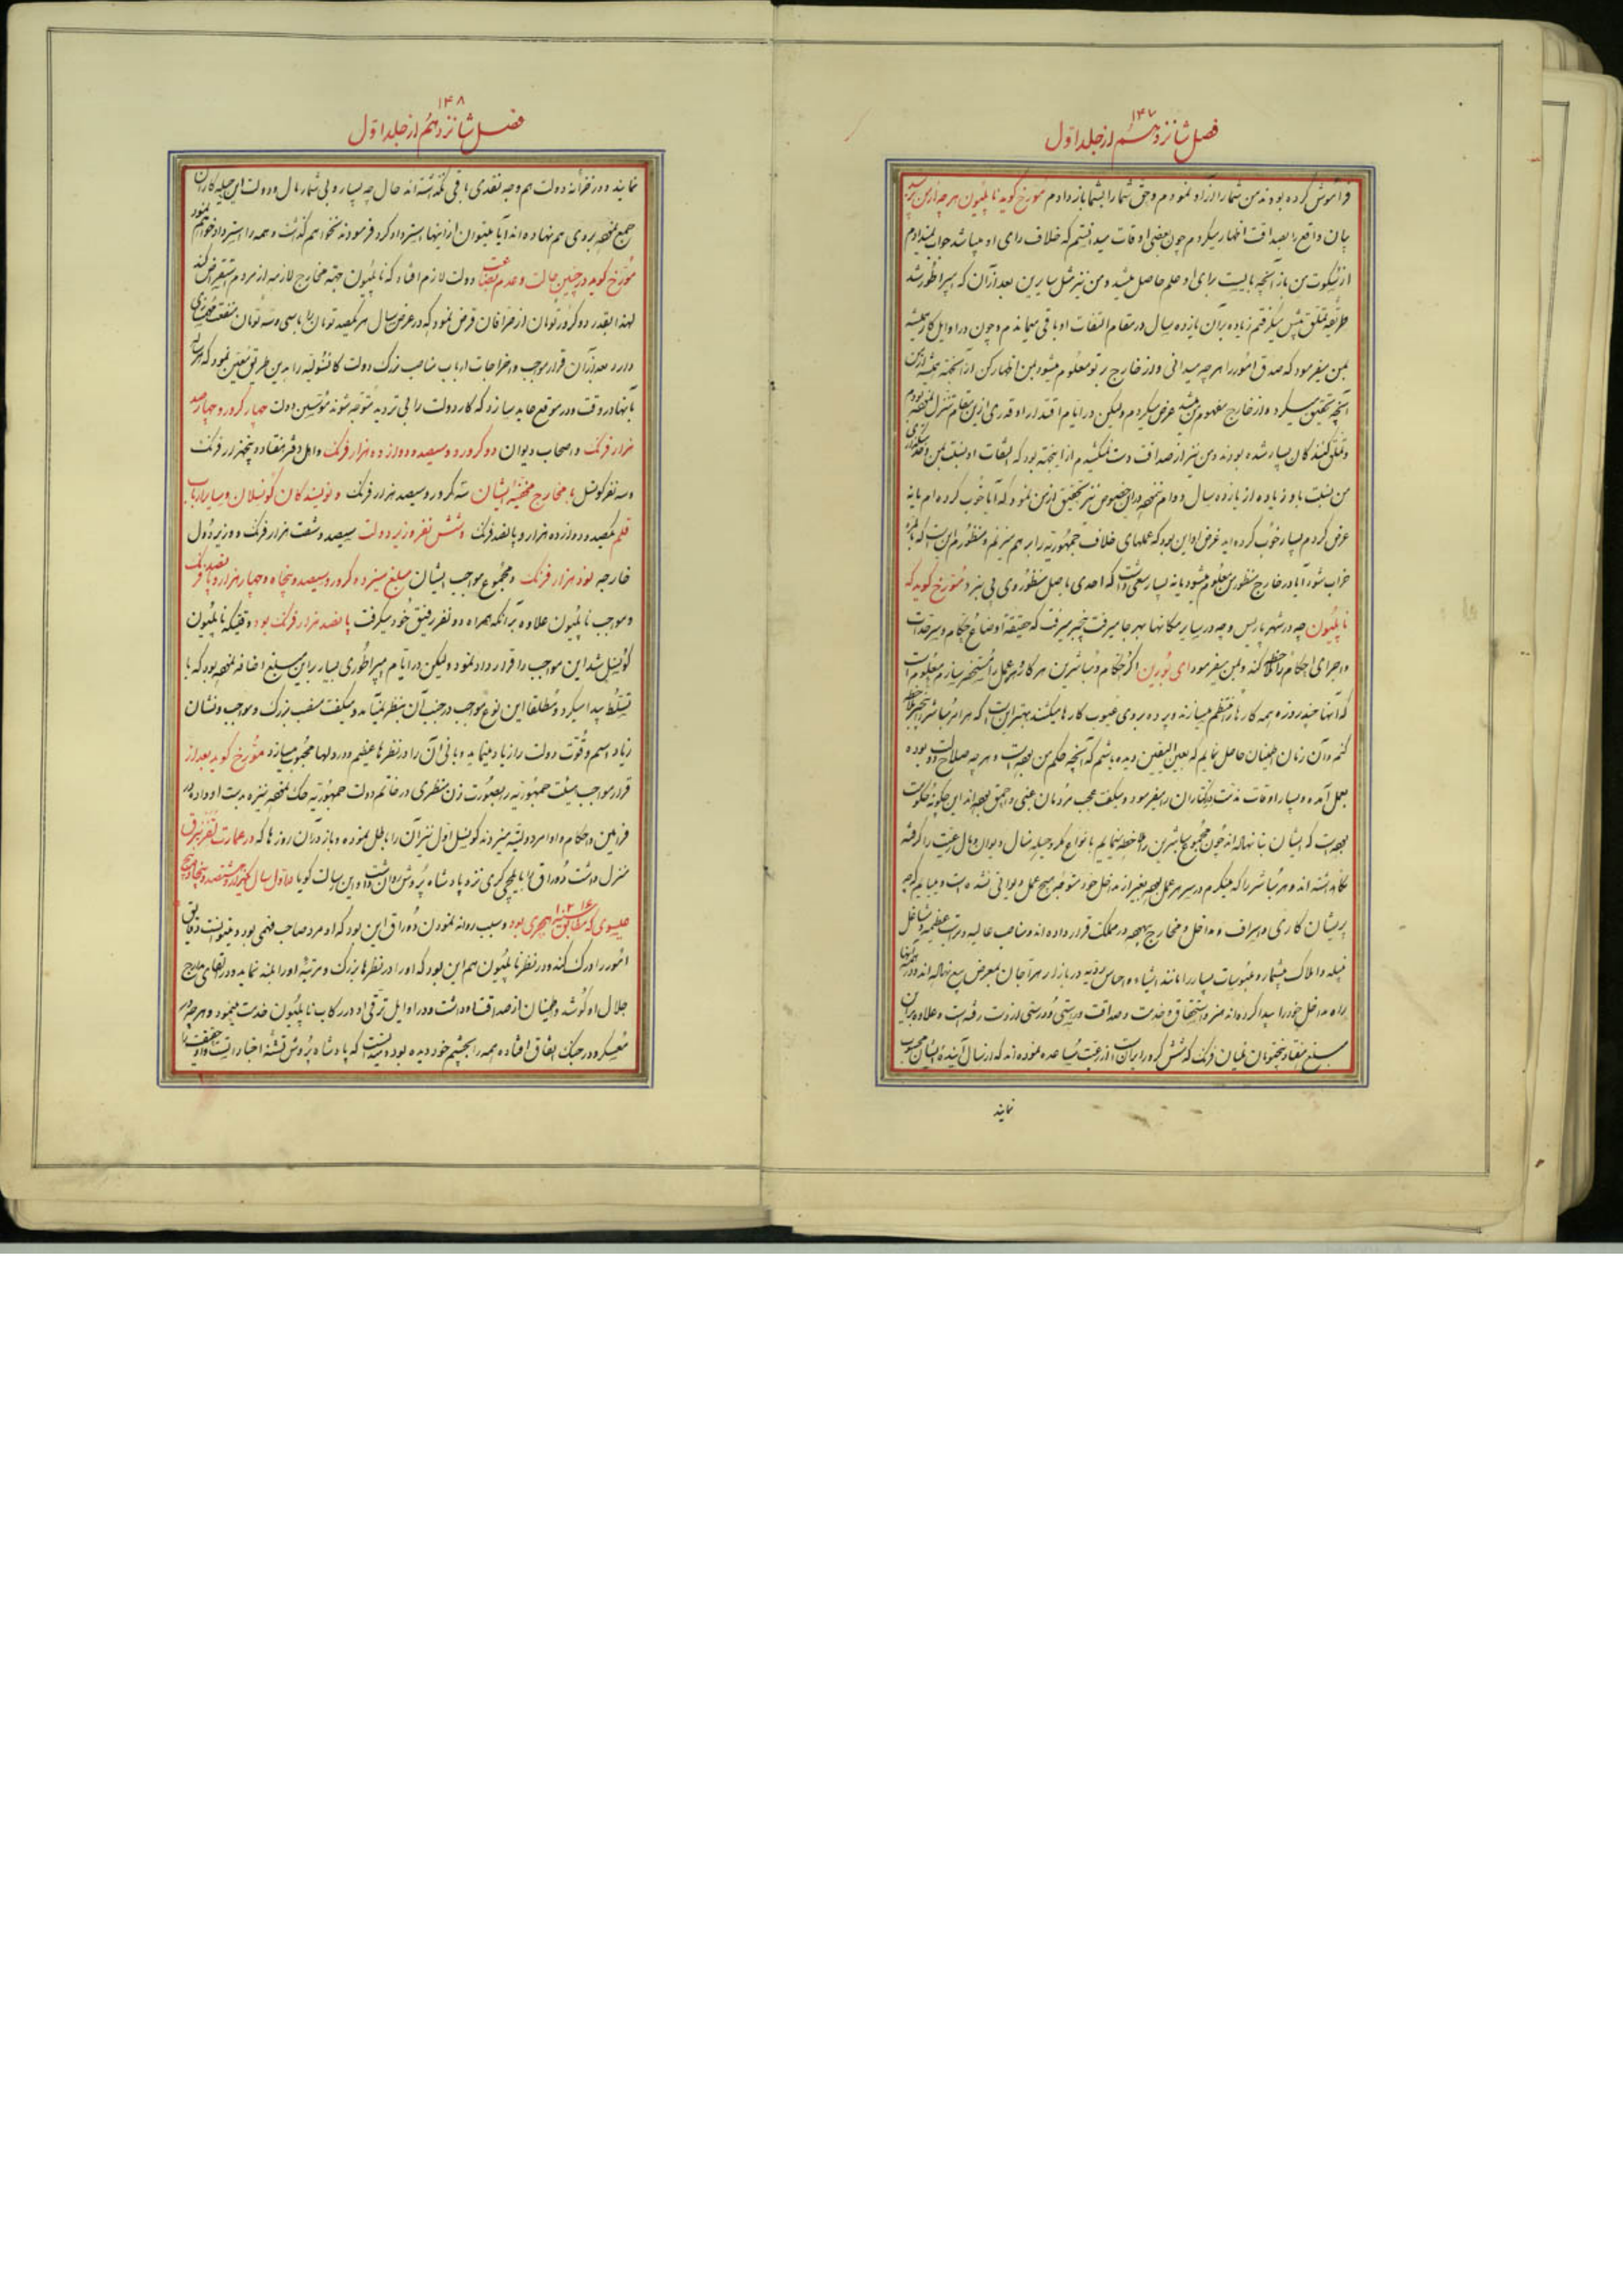 ۱۴۷
فصل شانزدهم از جلد اول
فراموش کرده بودند من شما را آزاد نمودم و حق شما را بشما باز دادم مورخ گوید ناپلیون هر چه از من
بیان واقع بصداقت اظهار میکردم چون بعضی اوقات میدانستم که خلاف رای او میباشد جواب نمیدادم
از سکوت من باز آنچه بایست برای او علم حاصل میشد و من نیز مثل سایرین بعد از آن که امپراطور شد
طریقه تملق پیش میگرفتم زیاده بر آن یازده سال در مقام التفات او باقی میماندم و چون در اوایل کار همیشه
بمن میفرمود که صدق امور را هر چه میدانی و در خارج بر تو معلوم میشود بمن اظهار کن از آنجهة همیشه از من
آنچه تحقیق میکرد و از خارج مفهوم من میشد عرض میکردم ولیکن در ایام اقتدار او قدری از این مقام تنزل نموده بودم
و تملق کنندگان بسیار شده بودند و من نیز از صداقت دست نمیکشیدم از اینجهة بود که التفات او نسبت بمن و
من نسبت باو زیاده از یازده سال دوام ننمود در این خصوص نیز تحقیق از من نمود که آیا خوب کرده‌ام یا نه
عرض کردم بسیار خوب کرده‌اید غرض او این بود که عملهای خلاف جمهوریه را بر هم میزنم و منظورم این است که
خراب شود آیا در خارج منظور من معلوم میشود یا نه بسیار سعی داشت که احدی باصل منظور وی پی نبرد مورخ گوید که
ناپلیون چه در شهر پاریس و چه در سایر مکانها بهر جا میرفت بیخبر میرفت که حقیقة اوضاع حکام و سرحدات
و اجرای احکام را ملاحظه کند و بمن میفرمود ای بورین اگر حکام و مباشرین هر کار و هر عمل را مستحضر سازم معلوم است
که آنها چند روزه همه کارها را منتظم میسازند و پرده بروی عیوب کارها میکشند بهتر این است که هر امر مباشر را بیخبر ملاحظه
کنم و آن زمان اطمینان حاصل نمایم که بعین الیقین دیده باشم که آنچه حکم من بوده است و هر چه صلاح دولت بوده
بعمل آمده و بسیار اوقات مذمت دیرکتاران را میفرمود و میگفت عجب مردمان غبی و احمق بوده‌اند این چگونه حکومت
بوده است که ایشان بنا نهاده‌اند چون مجموع مباشرین را ملاحظه مینمایم بانواع مکر و حیله منال دیوان و مال رعیت را گرفته
نگاه داشته‌اند و هر مباشر را که میبینم در سر هر عمل بوده بغیر از مداخل خود متوجه هیچ عمل دیوانی نشده است و میبایم که جز
پریشان کاری و اسراف و مداخل و مخارج بیهوده در مملکت قرار داده‌اند و مناصب عالیه و مراتب عظیمه و مشاغل
نبیله و املاک بیشمار و ملبوسات بسیار را مانند اشیاء و اجناس ردیه در بازار هراجان بمعرض بیع نهاده‌اند و
راه مداخل خود را پیدا کرده‌اند هنر و استحقاق و خدمت و صداقت و راستی و درستی از دست رفته است و علاوه بر این
مبلغ هفتاد و پنج ملیان فرنک که شش کرور ایران است از رعیت مساعده نموده‌اند که از منال آینده ایشان محسوب
نمایند
۱۴۸
فصل شانزدهم از جلد اول
نمایند و در خزانه دولت هم وجه نقدی باقی نگذاشته‌اند حال چه بسیار و بی شمار مال و دولت این حیله کاران
جمع نموده بر روی هم نهاده‌اند آیا میتوان از اینها استرداد کرد فرمودند نخواهم گذاشت و همه را استرداد خواهم نمود
مورخ گوید در چنین حالت و عدم بضاعت دولت لازم افتاد که ناپلیون جهة مخارج لازمه از مردم استقراض کند
لهذا بقدر دو کرور تومان از صرافان قرض نمود که در عرض سال هر یکصد تومان را با سی و سه تومان منفعت
دارد بعد از آن قرار مواجب و اخراجات ارباب مناصب بزرگ دولت کانسولیه را بدین طریق معین نمود که هر ساله
بآنها در وقت و در موقع عاید سازد که کار دولت را بی تردید متوجه شوند مؤسسین دولت چهار کرور و چهارصد
هزار فرنک و اصحاب دیوان دو کرور و سیصد و دوازده هزار فرنک و اهل دفتر هفتاد و پنجهزار فرنک
و سه نفر کونسل با مخارج مخفیه ایشان سه کرور و سیصد هزار فرنک و نویسندگان کونسلان و سایر ارباب
قلم یکصد و دوازده هزار و پانصد فرنک و شش نفر وزیر دولت سیصد و شصت هزار فرنک و وزیر دول
خارجه نود هزار فرنک و مجموع مواجب ایشان مبلغ سیزده کرور و سیصد و پنجاه و چهار هزار و پانصد فرنک
و مواجب ناپلیون علاوه بر آنکه همراه دو نفر رفیق خود میگرفت پانصد هزار فرنک بود و وقتیکه ناپلیون
کونسل شد این مواجب را قرار داد نمود ولیکن در ایام امپراطوری بسیار بر این مبلغ اضافه نموده بود که با
تسلط پیدا میکرد و مطلقا این نوع مواجب در جنب آن بنظر نمیآمد و میگفت منصب بزرگ و مواجب و نشان
زیاد اسم و قوت دولت را زیاد مینماید و بانی آن را در نظرها عظیم و در دلها محبوب میسازد مورخ گوید بعد از
قرار مواجب هیئت جمهوریه را بصورت زن منظری در خاتم دولت جمهوریه حک نموده نیزه بدست او داده در
فرامین و احکام و اوامر دولتیه میزدند کونسل اول نیز آن را باطل نموده و باز در آن روزها که در عمارت
منزل داشت دوراق را بایلچی گری نزد پادشاه پروش روان داشت و این رسالت گویا در اول سال یکهزار و هشتصد
عیسوی که مطابق سنه هجری بود و سبب روانه نمودن دوراق این بود که او مرد صاحب فهمی بود و میتوانست دقایق
امور را درک کند و در نظر ناپلیون هم این بود که او را در نظرها بزرگ و مرتبه او را بلند نماید و در ارتقای مدارج
جلال او کوشد و اطمینان از صداقت او داشت و در اوایل ترقی او در رکاب ناپلیون خدمت مینمود و هر چه در
معسکر و در جنگ اتفاق افتاده همه را بچشم خود دیده بود و میدانست که پادشاه پروش تشنه اخبار است و او حقیقت را